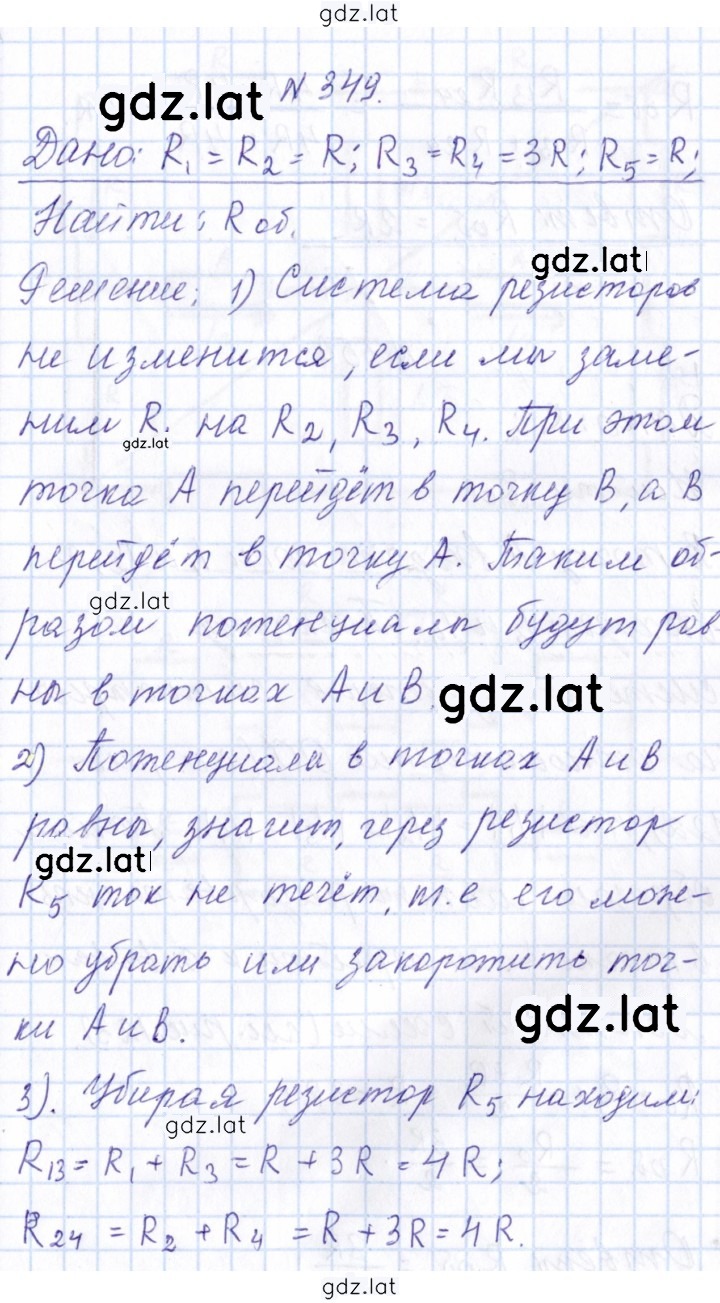 gdz.lat
N 349.
gdz.lat
Дано: R₁ = R₂ = R; R₃ = R₄ = 3R; R₅ = R;
Найти: R об.
gdz.lat
Решение: 1) Система резисторов
не изменится, если мы заме-
ним R. на R₂, R₃, R₄. При этом
gdz.lat
точка А перейдёт в точку В, а В
перейдёт в точку А. Таким об-
gdz.lat
разом потенциалы будут рав
ны в точках А и В
gdz.lat
2) Потенциалы в точках А и В
равны, значит, через резистор
gdz.lat
R₅ ток не течёт, т.е его мож-
но убрать или закоротить точ-
ки А и В.
gdz.lat
3). Убирая резистор R₅ находим:
gdz.lat
R₁₃ = R₁ + R₃ = R + 3R = 4R;
R₂₄ = R₂ + R₄ = R + 3R = 4R.
gdz.lat